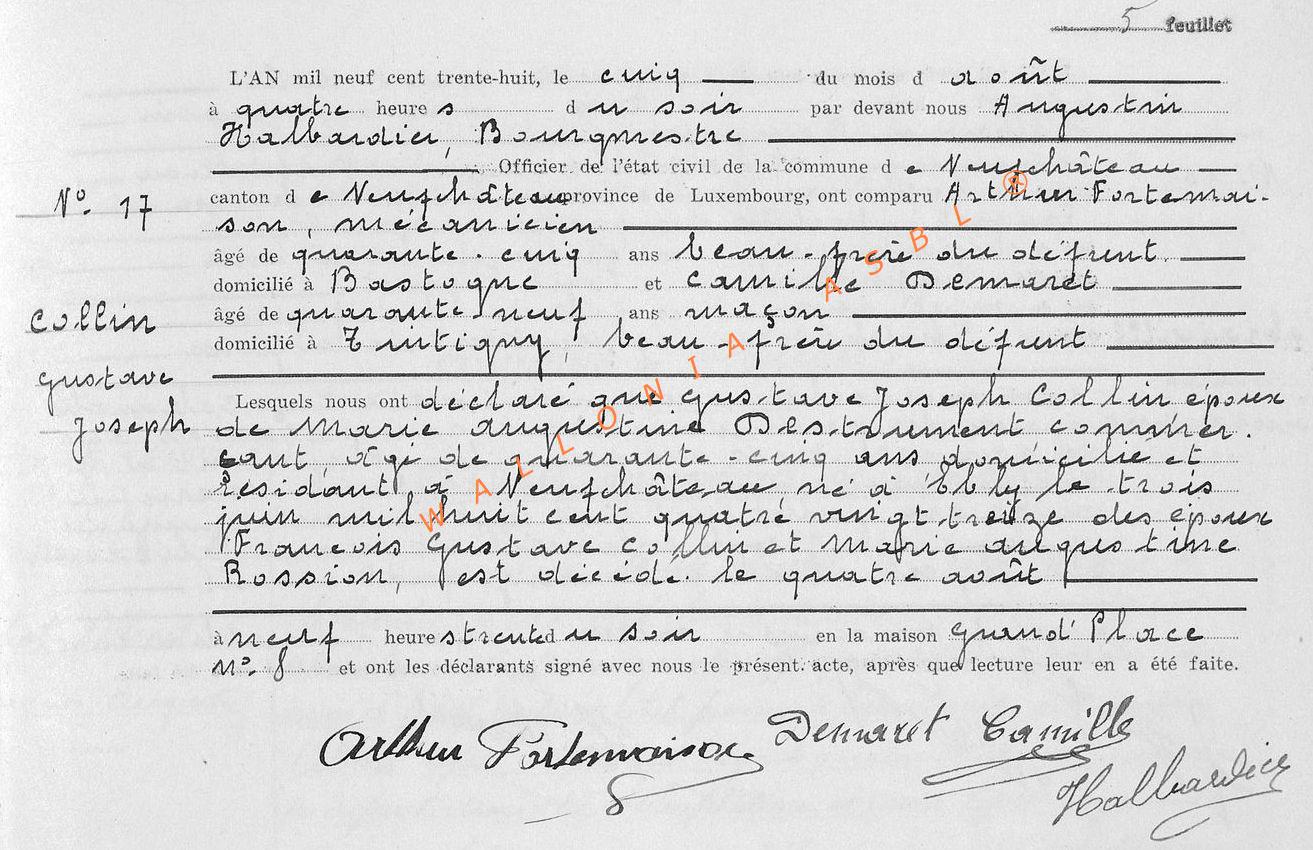 5 feuillet
L'AN mil neuf cent trente-huit, le cinq du mois d août
à quatre heure s d u soir par devant nous Augustin
Halbardier, Bourgmestre
Officier de l'état civil de la commune d e Neufchâteau
N° 17
canton d e Neufchâteau province de Luxembourg, ont comparu Arthur Fortemai-
son, mécanicien
âgé de quarante-cinq ans beau-frère du défunt
domicilié à Bastogne et Camille Demaret
âgé de quarante neuf ans maçon
domicilié à Tintigny, beau-frère du défunt
Collin
Gustave
Joseph
Lesquels nous ont déclaré que Gustave Joseph Collin époux
de Marie Augustine Destrument commer-
çant, âgé de quarante-cinq ans domicilié et
résidant à Neufchâteau, né à Ebly le trois
juin mil huit cent quatre vingt treize des époux
François Gustave Collin et Marie Augustine
Rossion, est décédé le quatre août
à neuf heure s trente d u soir en la maison Grand'Place
N° 8 et ont les déclarants signé avec nous le présent acte, après que lecture leur en a été faite.
Arthur Fortemaison
Demaret Camille
Halbardier
WALLONIA ASBL ®